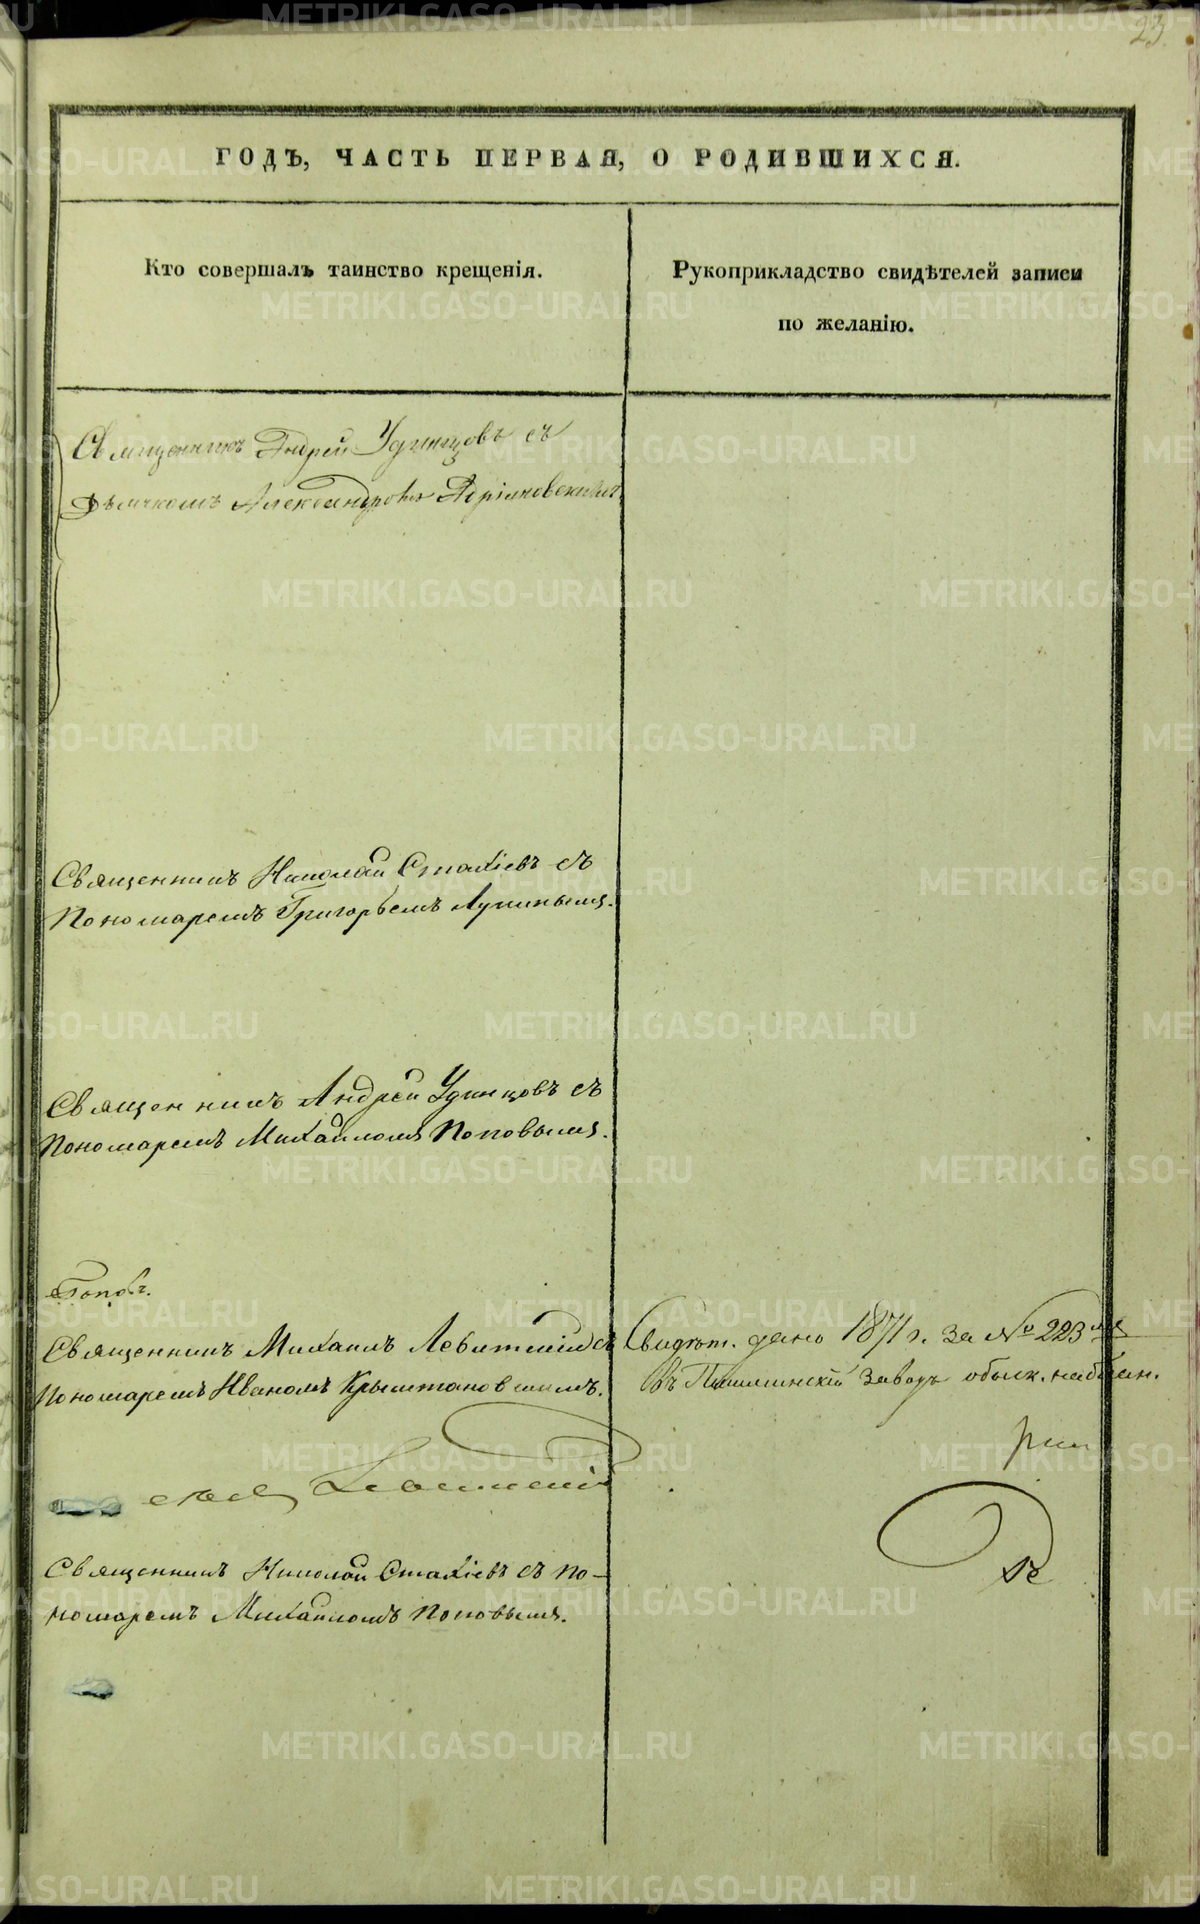 23
ГОДЪ, ЧАСТЬ ПЕРВАЯ, О РОДИВШИХСЯ.
Кто совершалъ таинство крещенія.
Рукоприкладство свидѣтелей записи
по желанію.
Священникъ Андрей Удинцовъ съ
Дьячкомъ Александромъ Адріановскимъ
Священникъ Николай Стахіевъ съ
Пономаремъ Григорьемъ Лупинымъ.
Священникъ Андрей Удинцовъ съ
Пономаремъ Михаиломъ Поповымъ.
Поповъ.
Священникъ Михаилъ Левитскій съ
Пономаремъ Иваномъ Крыштановскимъ.
Свидѣт. дано 1871 г. за № 223
въ Пышминскій Заводъ
Священникъ Николай Стахіевъ съ По-
номаремъ Михаиломъ Поповымъ.
METRIKI.GASO-URAL.RU